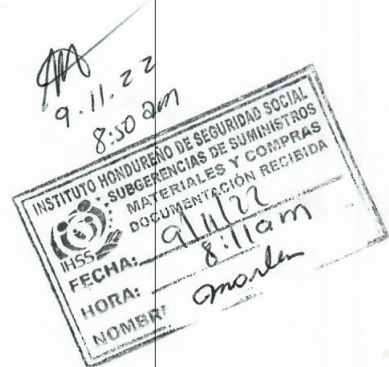 9.11.22
8:50 am
INSTITUTO HONDUREÑO DE SEGURIDAD SOCIAL
SUBGERENCIAS DE SUMINISTROS
MATERIALES Y COMPRAS
DOCUMENTACIÓN RECIBIDA
IHSS
FECHA: 9/11/22
HORA: 8:11am
NOMBR